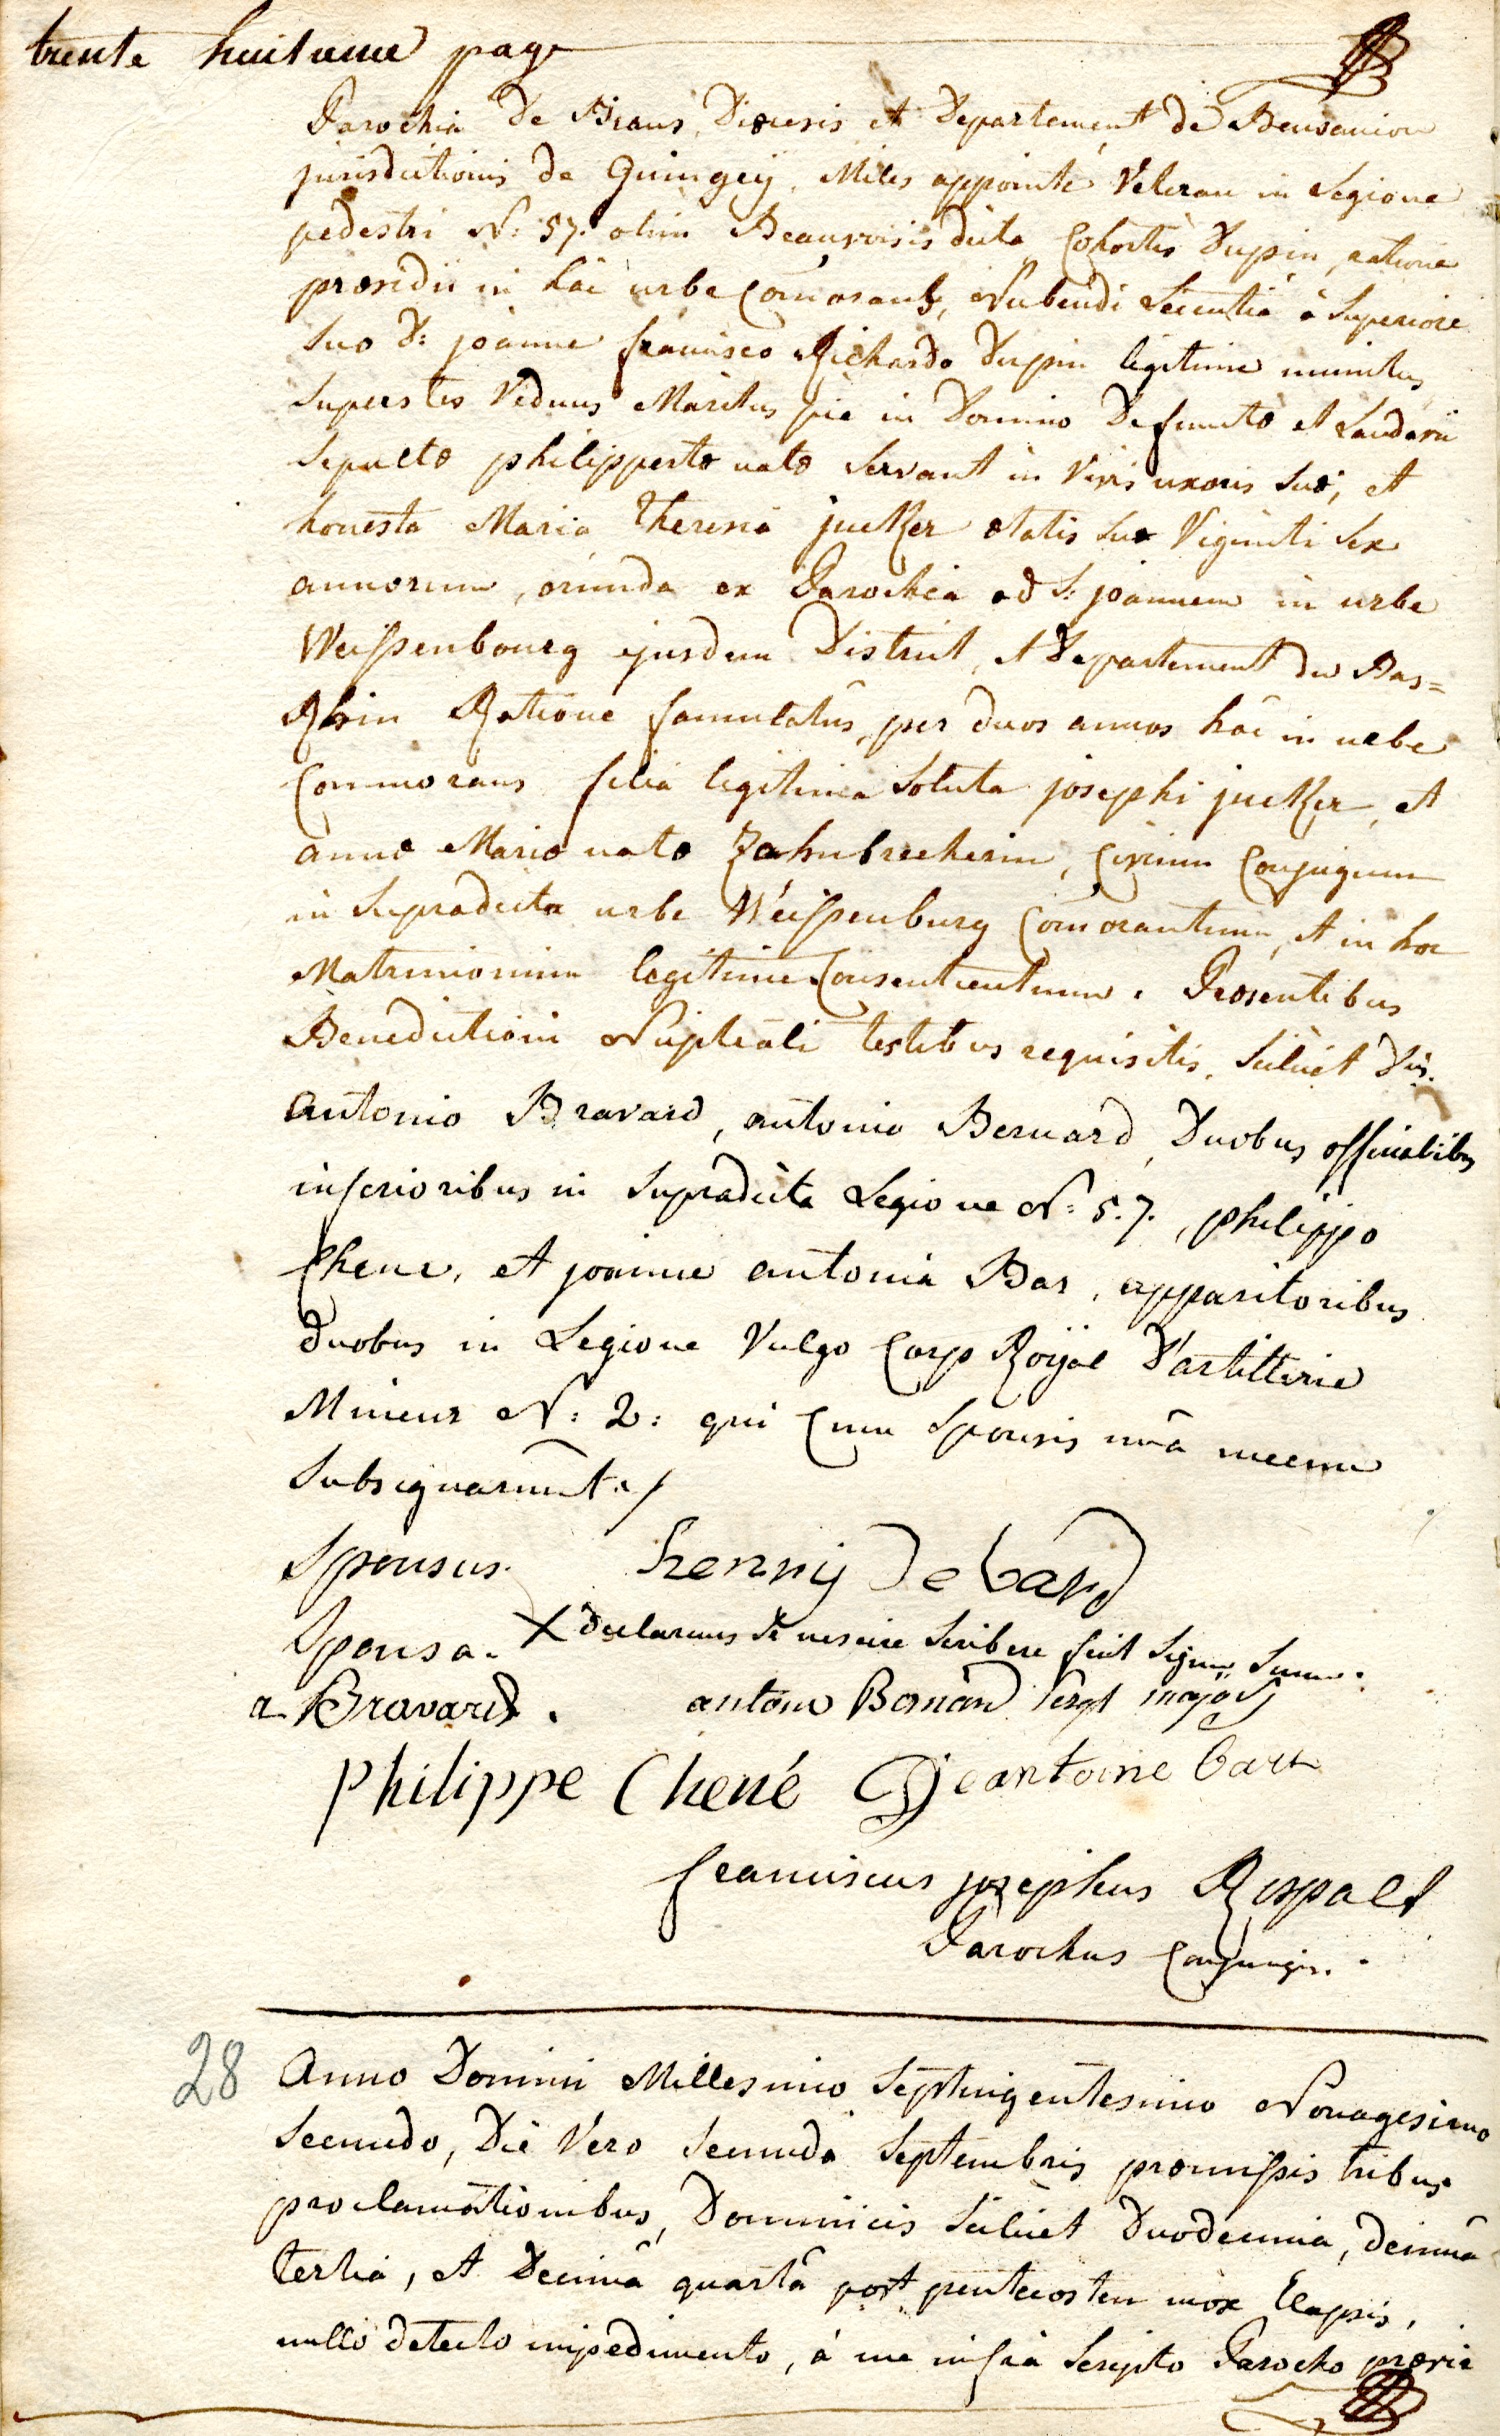 trente huitieme page
Parochia de Biaus, Diœcesis et Departement de Bensancion
jurisdictionis de Quingeÿ, Miles appointé Veteran in Legione
pedestri N: 57. olim Beauvoisis dicta Cohortis Dupin, ratione
præsidii in hâc urbe Comorans, Nubendi Licentiâ à Superiore
suo D: joanne francisco Richardo Dupin legitime munitus
Superstes Viduus Maritus piè in Domino Defunctæ et Landavii
Sepultæ philippertæ natæ Servant in Vivis uxoris suæ; et
honesta Maria Theresia jucker ætatis suæ Viginti sex
annorum, oriunda ex Parochia ad S: joannem in urbe
Weissenbourg ejusdem District, et Departement du Bas=
Rhin Ratione famulatûs, per duos annos hâc in urbe
Commorans filia legitima Soluta josephi jucker, et
annæ Mariæ natæ Zahnbrecherin, Civium Conjugum
in Supradicta urbe Weissenburg Comorantium, et in hoc
Matrimonium legitime Consentientium. Præsentibus
Benedictioni Nuptiali testibus requisitis, Scilicet Dis.
antonio Bravard, antonio Bernard, Duobus officialibus
inferioribus in Supradicta Legione N: 57., philippo
Chene, et joanne antonio Bar, apparitoribus
duobus in Legione Vulgo Corp Roÿal D'artillerie
Mineur N: 2: qui Cum Sponsis unà mecum
Subsignarunt./
Sponsus. henrÿ Debard
Sponsa. X declarans se nescire scribere fecit Signum Suum.
a Bravard. antoine Bernard sergt major
Philippe Chené Jeantoine bart
franciscus josephus Rispalt
Parochus Conjungens.
28 Anno Domini Millesimo Septingentesimo Nonagesimo
Secundo, Die Vero Secunda Septembris præmissis tribus
proclamationibus, Dominicis Scilicet Duodecima, decimâ
tertiâ, et Decimâ quartâ post pentecosten mox Elapsis,
nullo detecto impedimento, à me infrà Scripto Parocho prævie